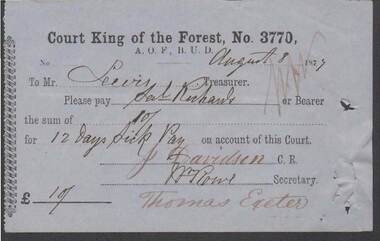 Court King of the Forest, No. 3770,
A. O. F., B. U. D.
No August 8 1877
To Mr. Lewis Treasurer.
Please pay Richards or Bearer
the sum of 10/
for 12 Days Sick Pay on account of this Court.
J Davidson C. R.
Wm Rowe Secretary.
£ 10/ Thomas Exeter